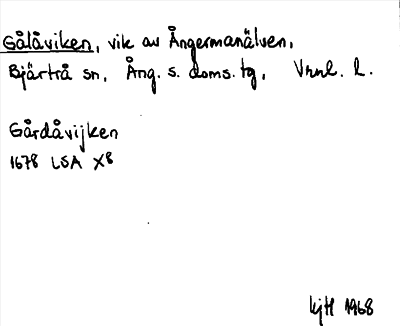 Gålåviken, vik av Ångermanälven,
Bjärtrå sn, Ång. s. doms. tg, Vnnl. l.
Gårdåvijken
1678 LSA X8
kjH 1968